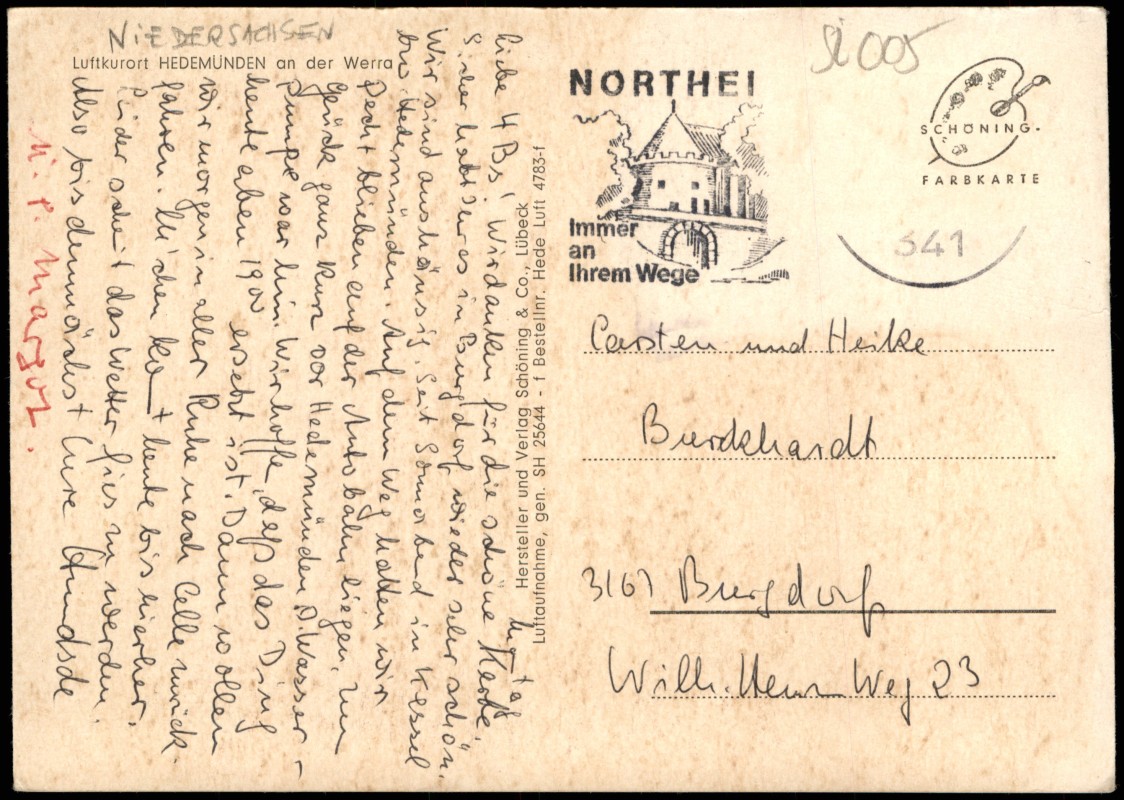 NIEDERSACHSEN
Luftkurort HEDEMÜNDEN an der Werra
Montag
Liebe 4 B's! Wir danken für die schöne Karte.
Sicher habt Ihr es in Burgdorf wieder sehr schön.
Wir sind aushäusig. Seit Sonnabend in Kassel
bzw. Hedemünden. Auf dem Weg hatten wir
Pech + blieben auf der Autobahn liegen, zum
Glück ganz kurz vor Hedemünden. D. Wasser-
pumpe war hin. Wir hoffen, daß das Ding
heute abend 19⁰⁰ ersetzt ist. Dann wollen
wir morgen in aller Ruhe nach Celle zurück-
fahren. kam + heute bis hierher.
Leider scheint das Wetter fies zu werden.
Also bis demnächst Eure
M. P. Margot.
Hersteller und Verlag Schöning & Co., Lübeck
Luftaufnahme, gen. SH 25644 - 1 Bestellnr. Hede Luft 4783-f
NORTHEI
Immer
an
Ihrem Wege
Si 005
SCHÖNING-
FARBKARTE
341
Carsten und Heike
Burckhardt
3167 Burgdorf
Wilh.-Henn-Weg 23